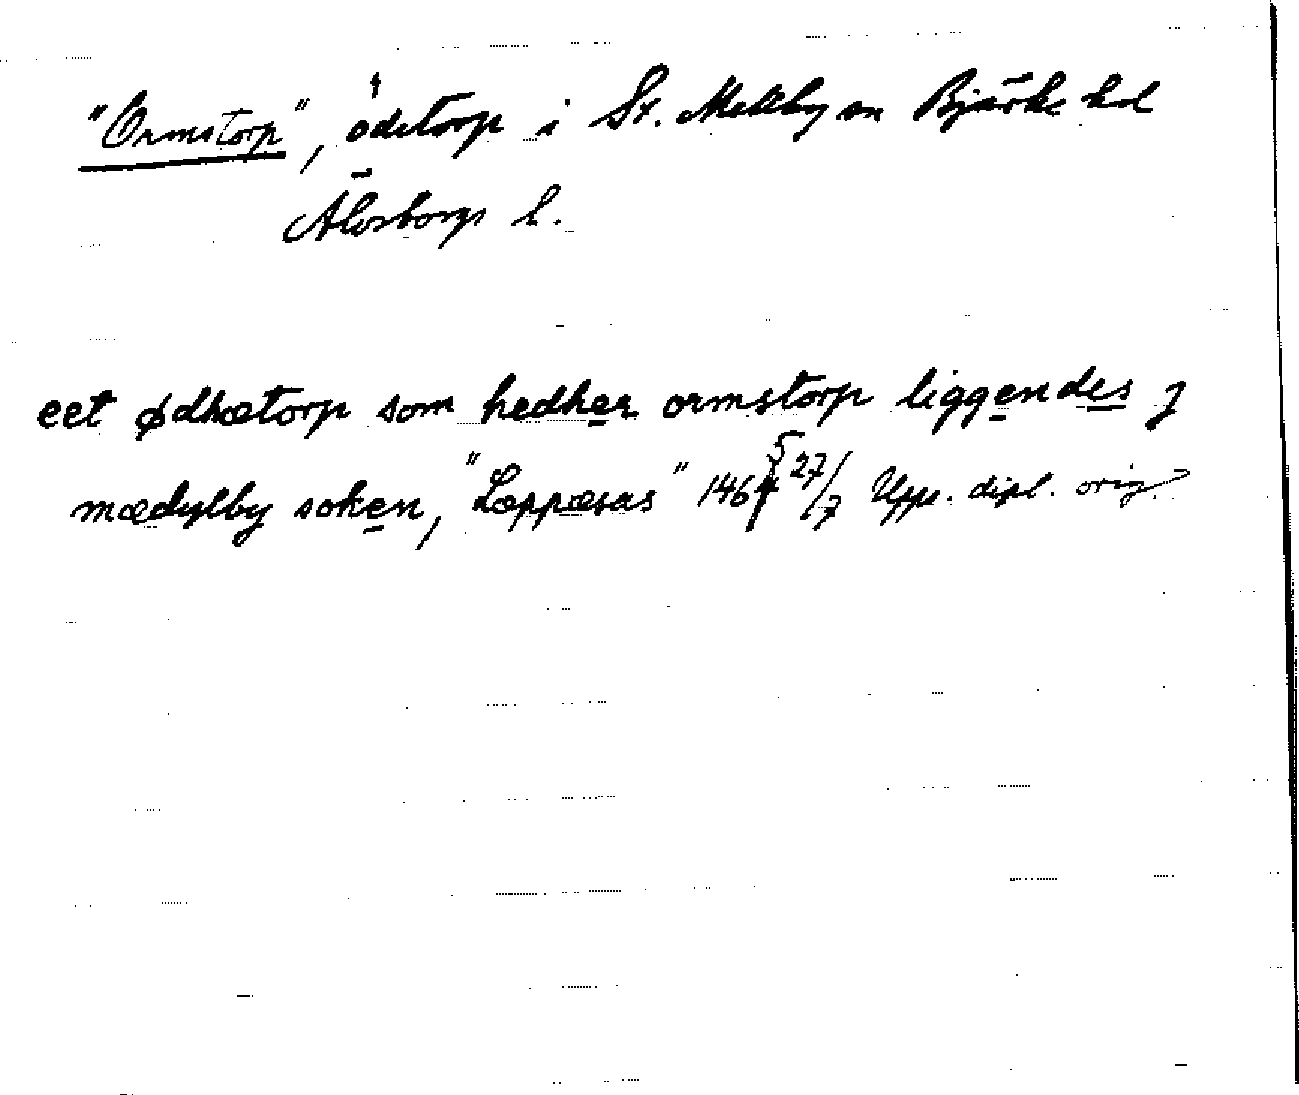 "Ormstorp", ödetorp i St. Mellby sn Bjärke hd
Älvsborgs l.
eet ødhætorp som hedher ormstorp liggendes j
mædylby soken, "Læppæsas" 1465 27/7 Upps. dipl. orig.